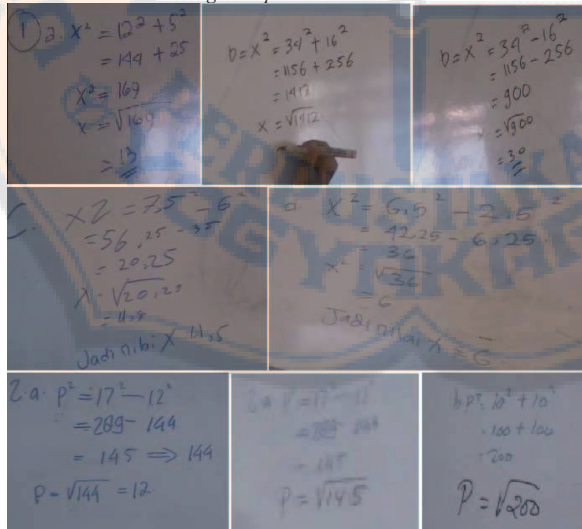 ① a. x² = 12² + 5²
= 144 + 25
x² = 169
x = √169
= 13
b = x² = 34² + 16²
= 1156 + 256
= 1412
x = √1412
b = x² = 34² - 16²
= 1156 - 256
= 900
x = √900
= 30
C. x2 = 7,5² - 6²
= 56,25 - 35
= 20,25
x = √20,25
= 4,5
Jadi nilai x 4,5
d x² = 6,5² - 2,5²
= 42,25 - 6,25
= 36
x² √36
= 6
Jadi nilai x = 6
2.a. p² = 17² - 12²
= 289 - 144
= 145 ⇒ 144
p = √144 = 12
2 a p² = 17² - 12²
= 289 144
= 145
P = √145
b p² = 10² + 10²
= 100 + 100
= 200
P = √200